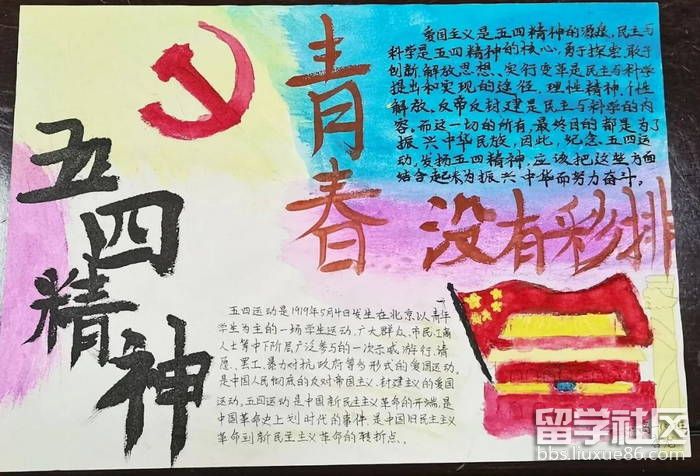 五四精神
青春
没有彩排
爱国主义是五四精神的源泉，民主与
科学是五四精神的核心，勇于探索敢于
创新、解放思想、实行变革是民主与科学
提出和实现的途径，理性精神、个性
解放、反帝反封建是民主与科学的内
容。而这一切的所有，最终目的都是为了
振兴中华民族，因此，纪念五四运
动，发扬五四精神，应该把这些方面
结合起来为振兴中华而努力奋斗。
五四运动是1919年5月4日发生在北京以青年
学生为主的一场学生运动，广大群众、市民、工商
人士等中下阶层广泛参与的一次示威游行、请
愿、罢工、暴力对抗政府等多形式的爱国运动，
是中国人民彻底的反对帝国主义、封建主义的爱国
运动，五四运动是中国新民主主义革命的开端，是
中国革命史上划时代的事件，是中国旧民主主义
革命到新民主主义革命的转折点。
留学社区
bbs.liuxue86.com